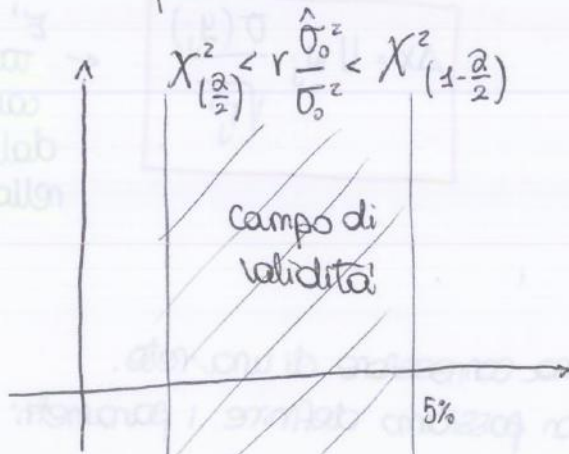 χ²(α/2) < r σ̂₀²/σ₀² < χ²(1-α/2)
campo di
validità
5%